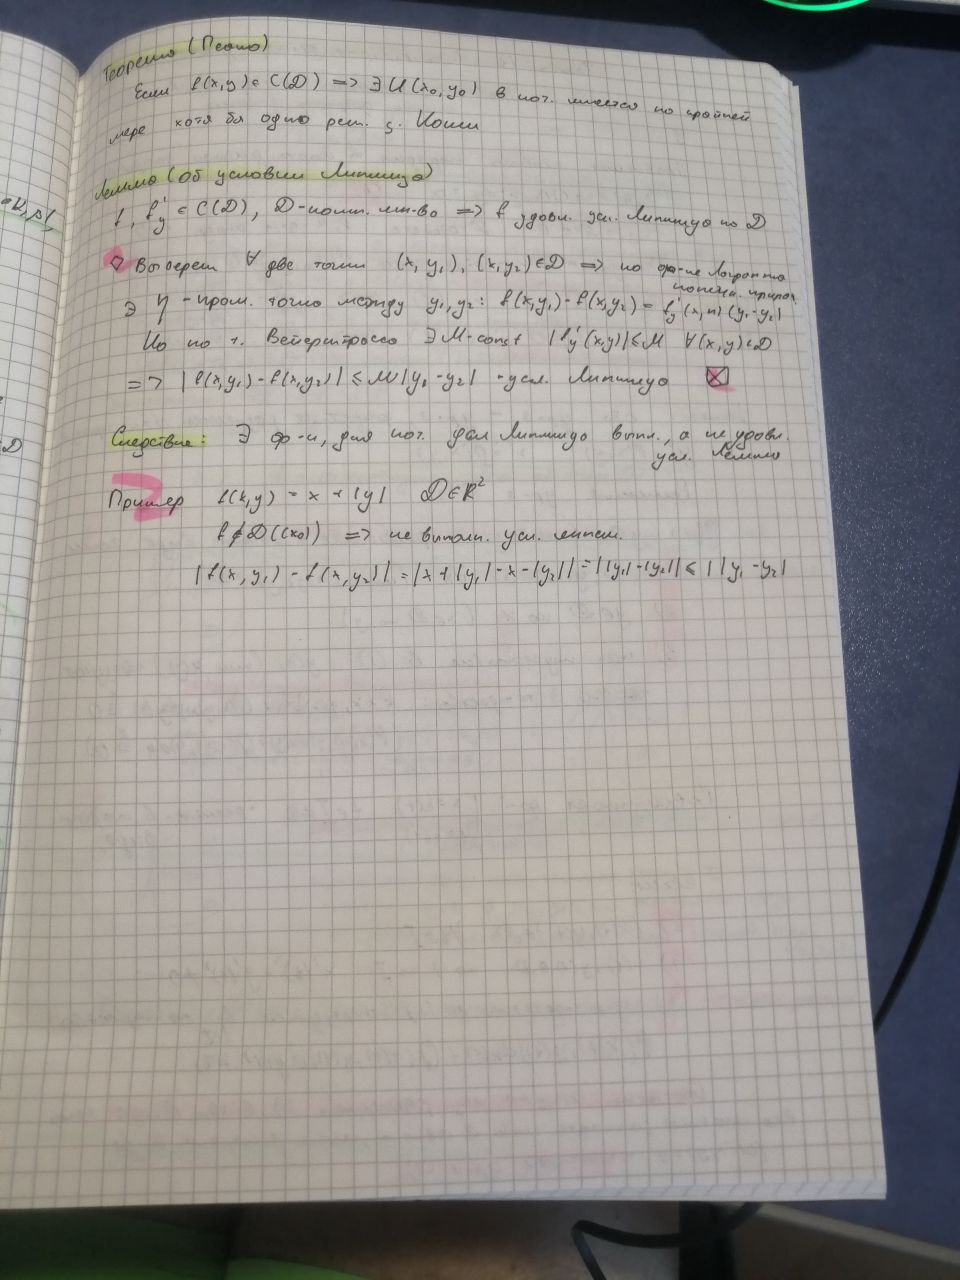 Теорема (Пеано)
Если f(x,y) ∈ C(D) => ∃ U(x₀,y₀) в кот. имеется по крайней
мере хотя бы одно реш. з. Коши
Лемма (об условии Липшица)
f, f'y ∈ C(D), D - комп. мн-во => f удовл. усл. Липшица по D
Выберем ∀ две точки (x,y₁), (x,y₂) ∈ D => по ф-ле Лагранжа
конечн. прира.
∃ η - пром. точка между y₁,y₂: f(x,y₁) - f(x,y₂) = f'y(x,η)(y₁-y₂)
Но по т. Вейерштрасса ∃ M-const |f'y(x,y)| ≤ M ∀(x,y)∈D
=> |f(x,y₁) - f(x,y₂)| ≤ M|y₁-y₂| - усл. Липшица ☒
Следствие: ∃ ф-и, для кот. усл Липшица вып., а не удовл.
усл. Леммы
Пример f(x,y) = x + |y| D∈R²
f∉D((x0)) => не выполн. усл.
|f(x,y₁) - f(x,y₂)| = |x+|y₁|-x-|y₂|| = ||y₁|-|y₂|| ≤ 1|y₁-y₂|